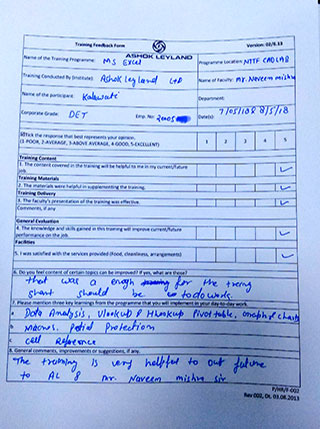 Training Feedback Form
ASHOK LEYLAND
Version: 02/8.13
Name of the Training Programme: MS Excel
Programme Location: NTTF CAD LAB
Training Conducted By (Institute): Ashok Leyland Ltd
Name of Faculty: Mr. Naveen mishra
Name of the participant: Kalawati
Department:
Corporate Grade: DET
Emp. No:
Date(s): 7/05/18 8/5/18
Tick the response that best represents your opinion.
(1-POOR, 2-AVERAGE, 3-ABOVE AVERAGE, 4-GOOD, 5-EXCELLENT)
1 2 3 4 5
Training Content
1. The content covered in the training will be helpful to me in my current/future job.
Training Materials
2. The materials were helpful in supplementing the training.
Training Delivery
3. The Faculty's presentation of the training was effective.
Comments, if any
General Evaluation
4. The knowledge and skills gained in this training will improve current/future
performance on the job.
Facilities
5. I was satisfied with the services provided (Food, cleanliness, arrangements)
6. Do you feel content of certain topics can be improved? If yes, what are those?
that was a enough for the
should be to do work.
7. Please mention three key learnings from the programme that you will implement in your day-to-day work.
a Data Analysis, Vlookup & Hlookup Pivot table, charts
b macros, Protection
c cell Reference
8. General comments, improvements or suggestions, if any.
The training is very helpful to out future
to AL & mr. Naveen mishra sir
P/HR/F-002
Rev 002, Dt. 03.08.2013